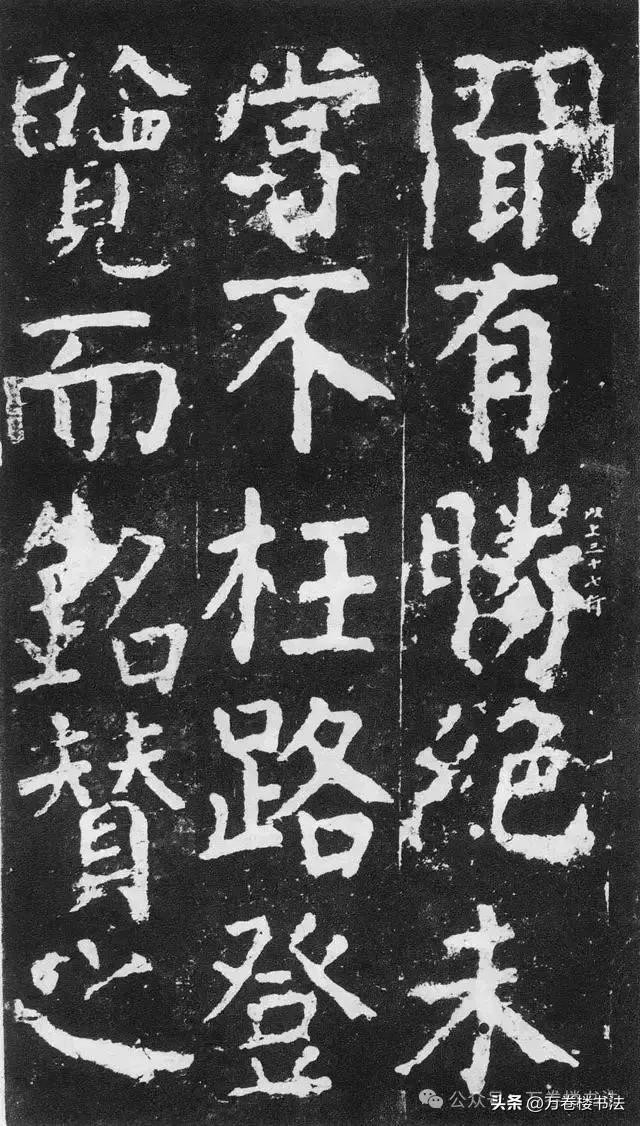 聞有勝絶未
以上三十七行
嘗不枉路登
覽而銘賛之
公众号·万卷楼书法
头条 @万卷楼书法